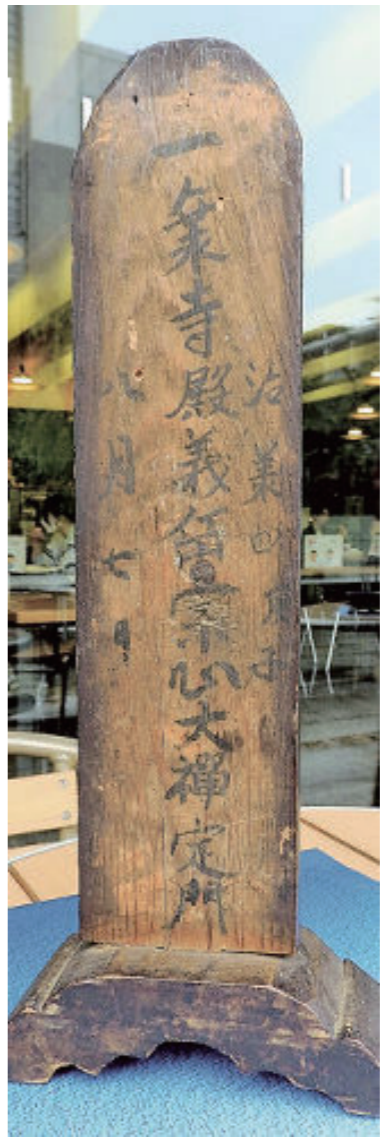 治承四庚子
一乗寺殿義宗心大禪定門
八月七日